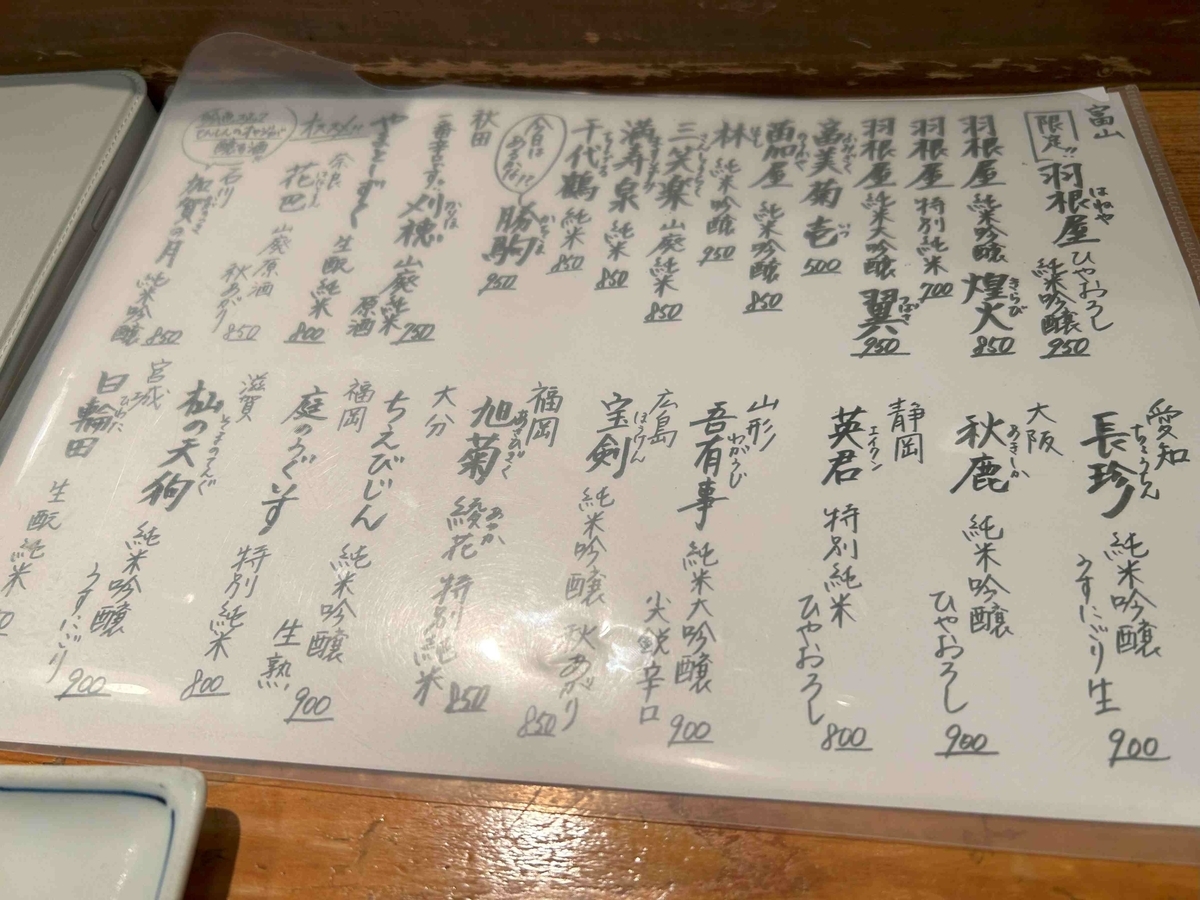 富山
限定!!
羽根屋 はねや
ひやおろし
純米吟醸 950
羽根屋 純米吟醸 煌火 きらび 850
羽根屋 特別純米 700
羽根屋 純米大吟醸 翼 つばさ 950
富美菊 ふみぎく 壱 いつ 500
富加屋 純米吟醸 850
林 はやし 純米吟醸 950
三笑楽 さんしょうらく 山廃純米 850
満寿泉 ますいずみ 純米 850
千代鶴 ちよづる 純米 850
今日はあるかな!?
勝駒 かちこま 950
秋田
一番辛口です。 刈穂 かりほ 山廃純米 750
原酒
やまとしずく 生酛純米 800
オススメ!!
奈良
花巴 はなともえ 山廃原酒 850
秋あがり
石川
加賀の月 純米吟醸 850
愛知
長珍 ちょうちん 純米吟醸
うすにごり生 900
大阪
秋鹿 あきしか 純米吟醸
ひやおろし 900
静岡
英君 エイクン 特別純米
ひやおろし 800
山形
吾有事 わがうじ 純米大吟醸
尖鋭辛口 900
広島
宝剣 ほうけん 純米吟醸 秋あがり 850
福岡
旭菊 あさひぎく 綾花 あやか 特別純米 850
大分
ちえびじん 純米吟醸
生熟 900
福岡
庭のうぐいす 特別純米 800
滋賀
杣の天狗 そまのてんぐ 純米吟醸
うすにごり 900
宮城
日輪田 ひわた 生酛純米